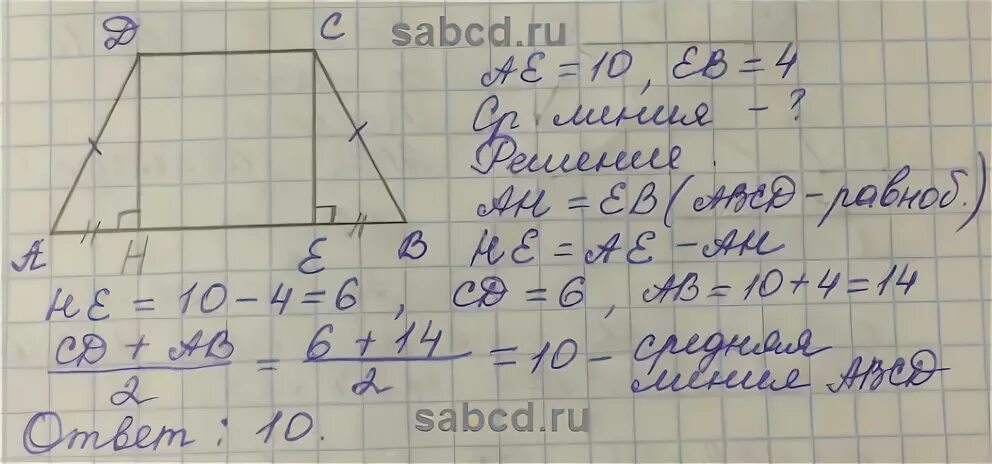 sabcd.ru
D C
AE = 10, EB = 4
Ср линия - ?
Решение.
AH = EB (ABCD - равноб.)
A H E B
HE = AE - AH
HE = 10 - 4 = 6, CD = 6, AB = 10 + 4 = 14
CD + AB / 2 = 6 + 14 / 2 = 10 - средняя линия ABCD
sabcd.ru
Ответ: 10.